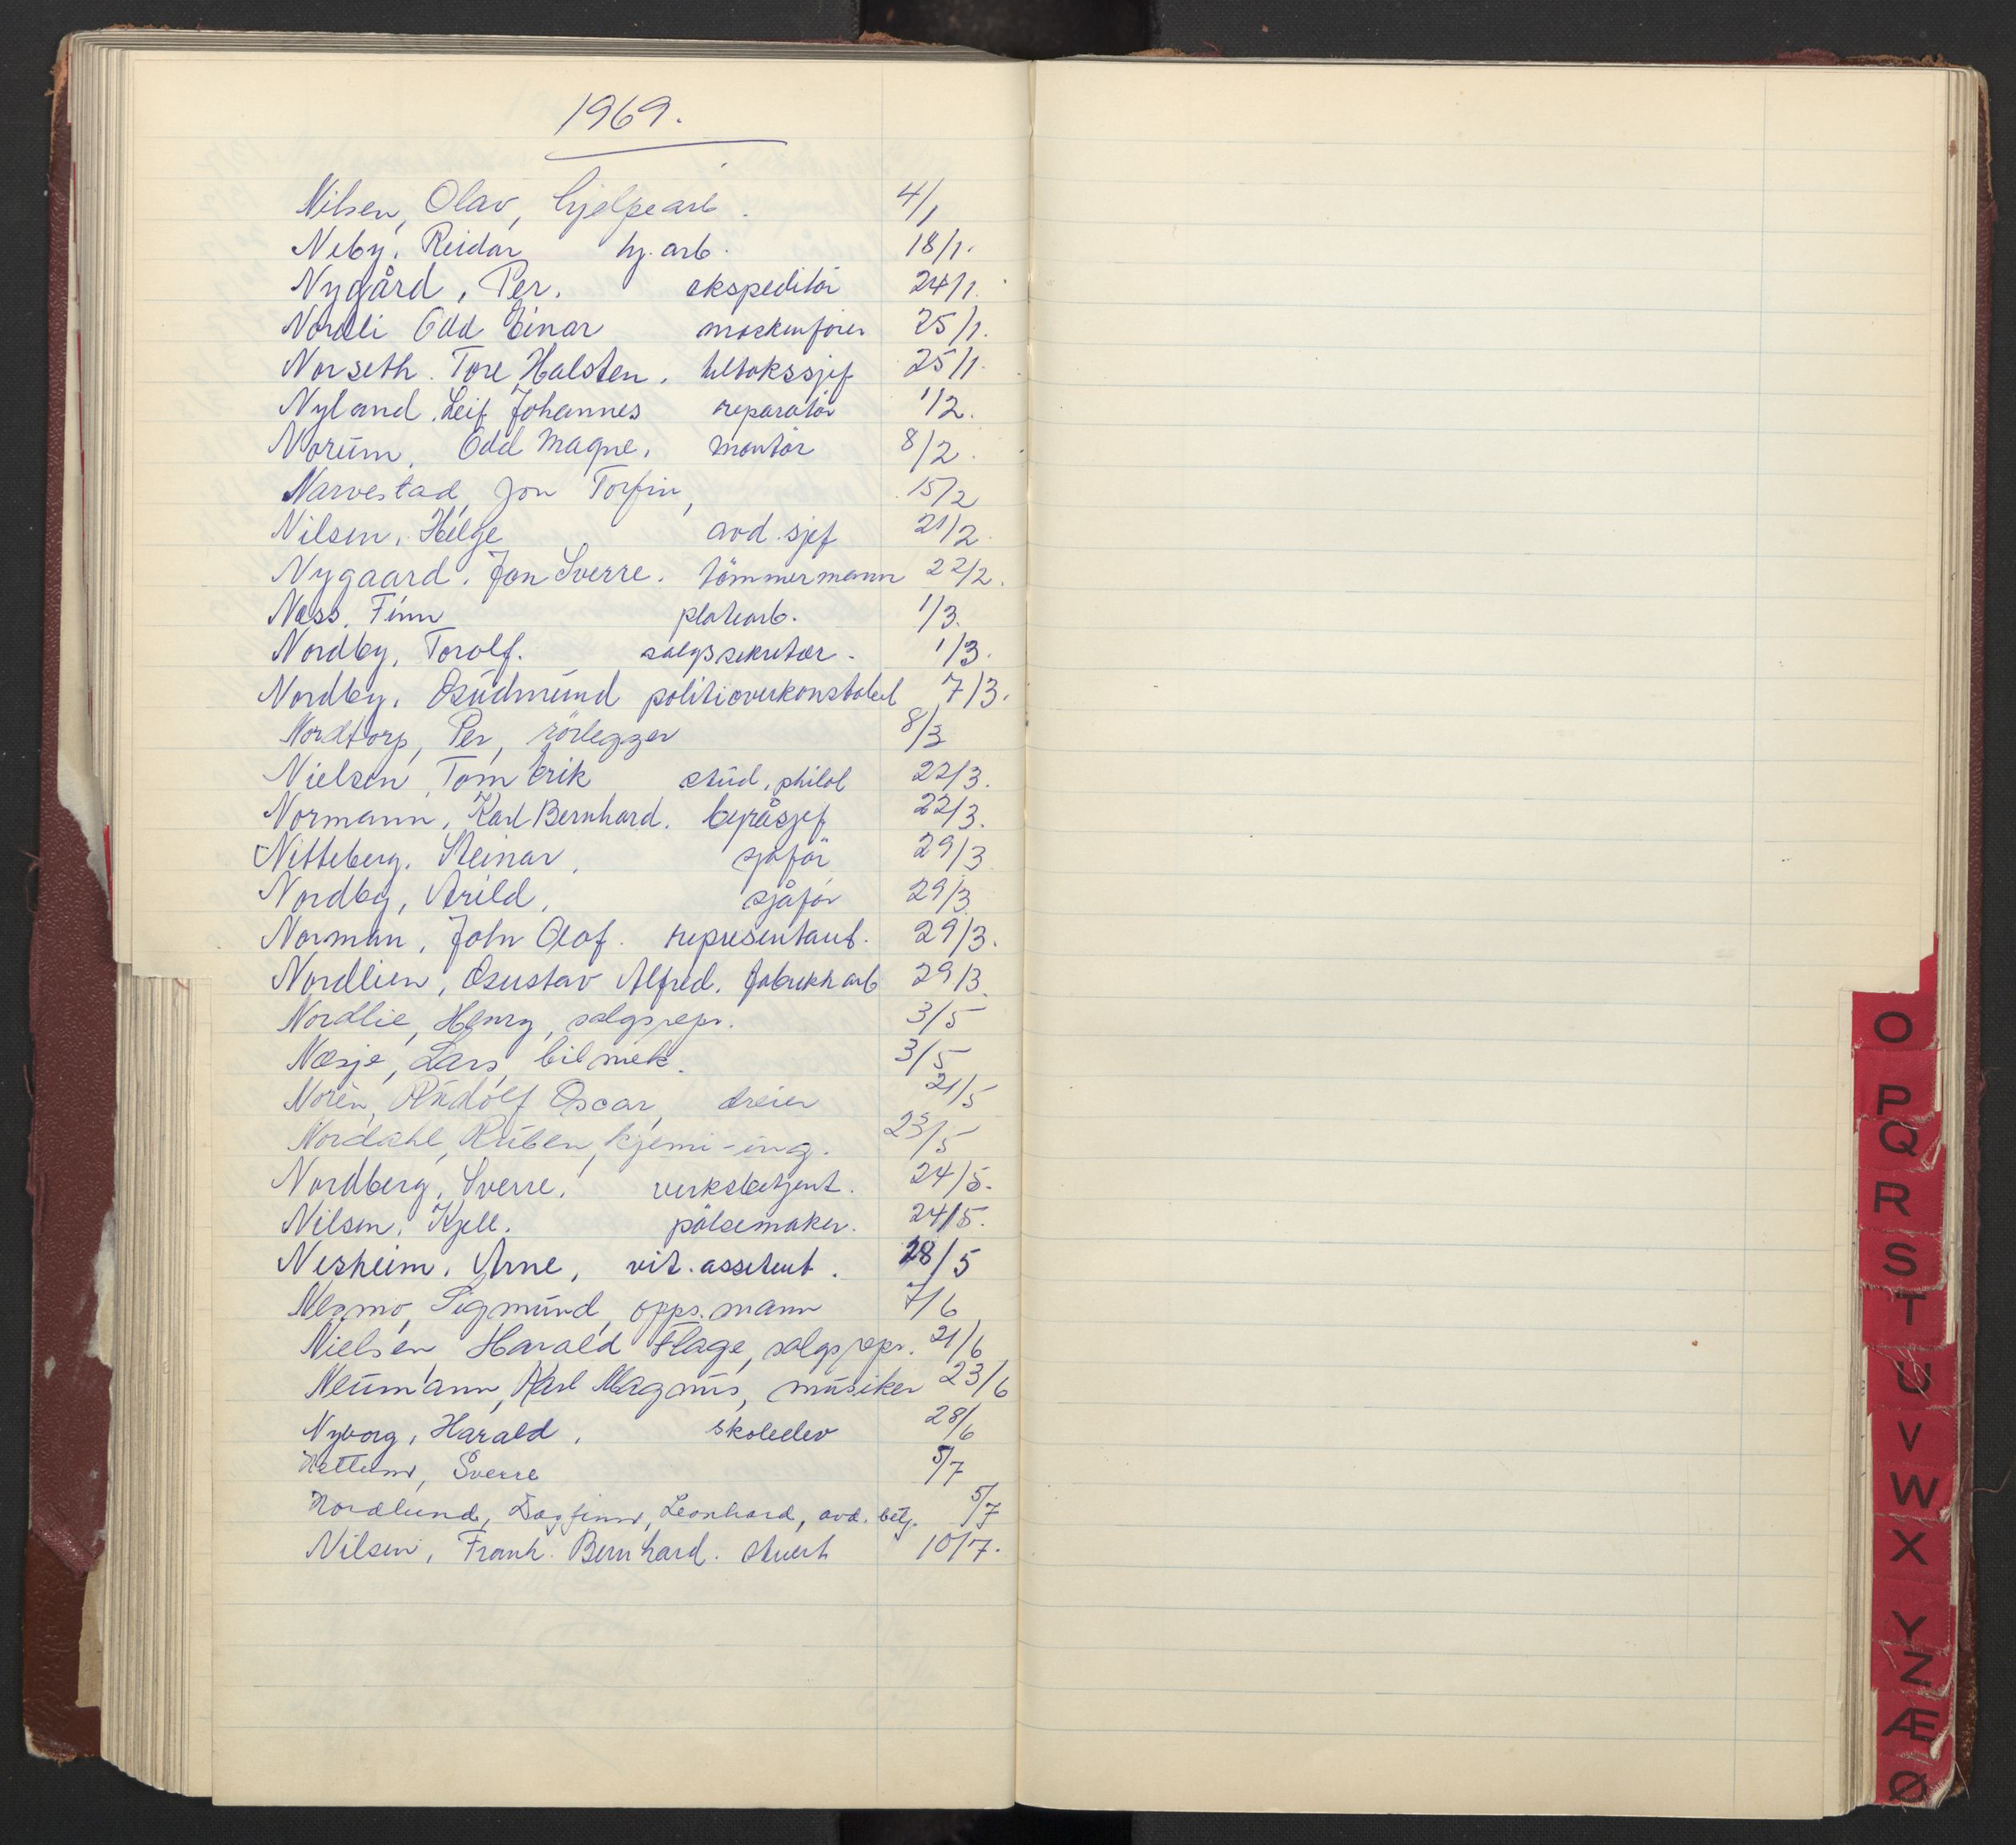 1969.
Nilsen, Olav, hjelpearb. 4/1
Neby, Reidar hj. arb. 18/1.
Nygård, Per. ekspeditör 24/1.
Nordli Odd Einar maskinfører 25/1.
Norseth. Tore Halsten. 25/1.
Nyland, Leif Johannes reparatör 1/2.
Norum, Odd Magne. montör 8/2.
Narvestad, Jon Torfin, 15/2
Nilsen, Helge avd. sjef 21/2.
Nygaard. Jon Sverre. tömmermann 22/2.
Næss. Finn platearb. 1/3.
Nordby, Torolf. salgssekretær. 1/3.
Nordby. Gudmund politioverkonstabel 7/3.
Nordtorp, Per, rörlegger 8/3
Nielsen, Tom Erik stud. philol 22/3.
Normann, Karl Bernhard. byråsjef 22/3.
Nitteberg. Steinar, sjåför 29/3
Nordby, Arild, sjåför 29/3
Norman, John Olof. representant. 29/3.
Nordlien, Gustav Alfred. fabrikkarb 29/3.
Nordlie, Henry, salgsrepr. 3/5
Næsje, Lars, bilmek. 3/5
Norén, Rudolf Oscar, dreier 21/5
Nordahl, Ruben, kjemi-ing. 23/5
Nordberg, Sverre. verksbetjent. 24/5.
Nilsen, Kjell. pölsemaker. 24/5.
Nesheim. Arne, vit. assitent. 28/5
Nesmo, Sigmund, opps. mann 7/6
Nielsen Harald Flage, salgsrepr. 21/6
Neumann, Karl Magnus, musiker 23/6
Nyborg, Harald, skoleelev 28/6
Nettum, Sverre 5/7
Nordlund, Dagfinn, Leonhard, avd. betj. 5/7
Nilsen, Frank. Bernhard. stuert 10/7.
O
P
Q
R
S
T
U
V
W
X
Y
Z
Æ
Ø